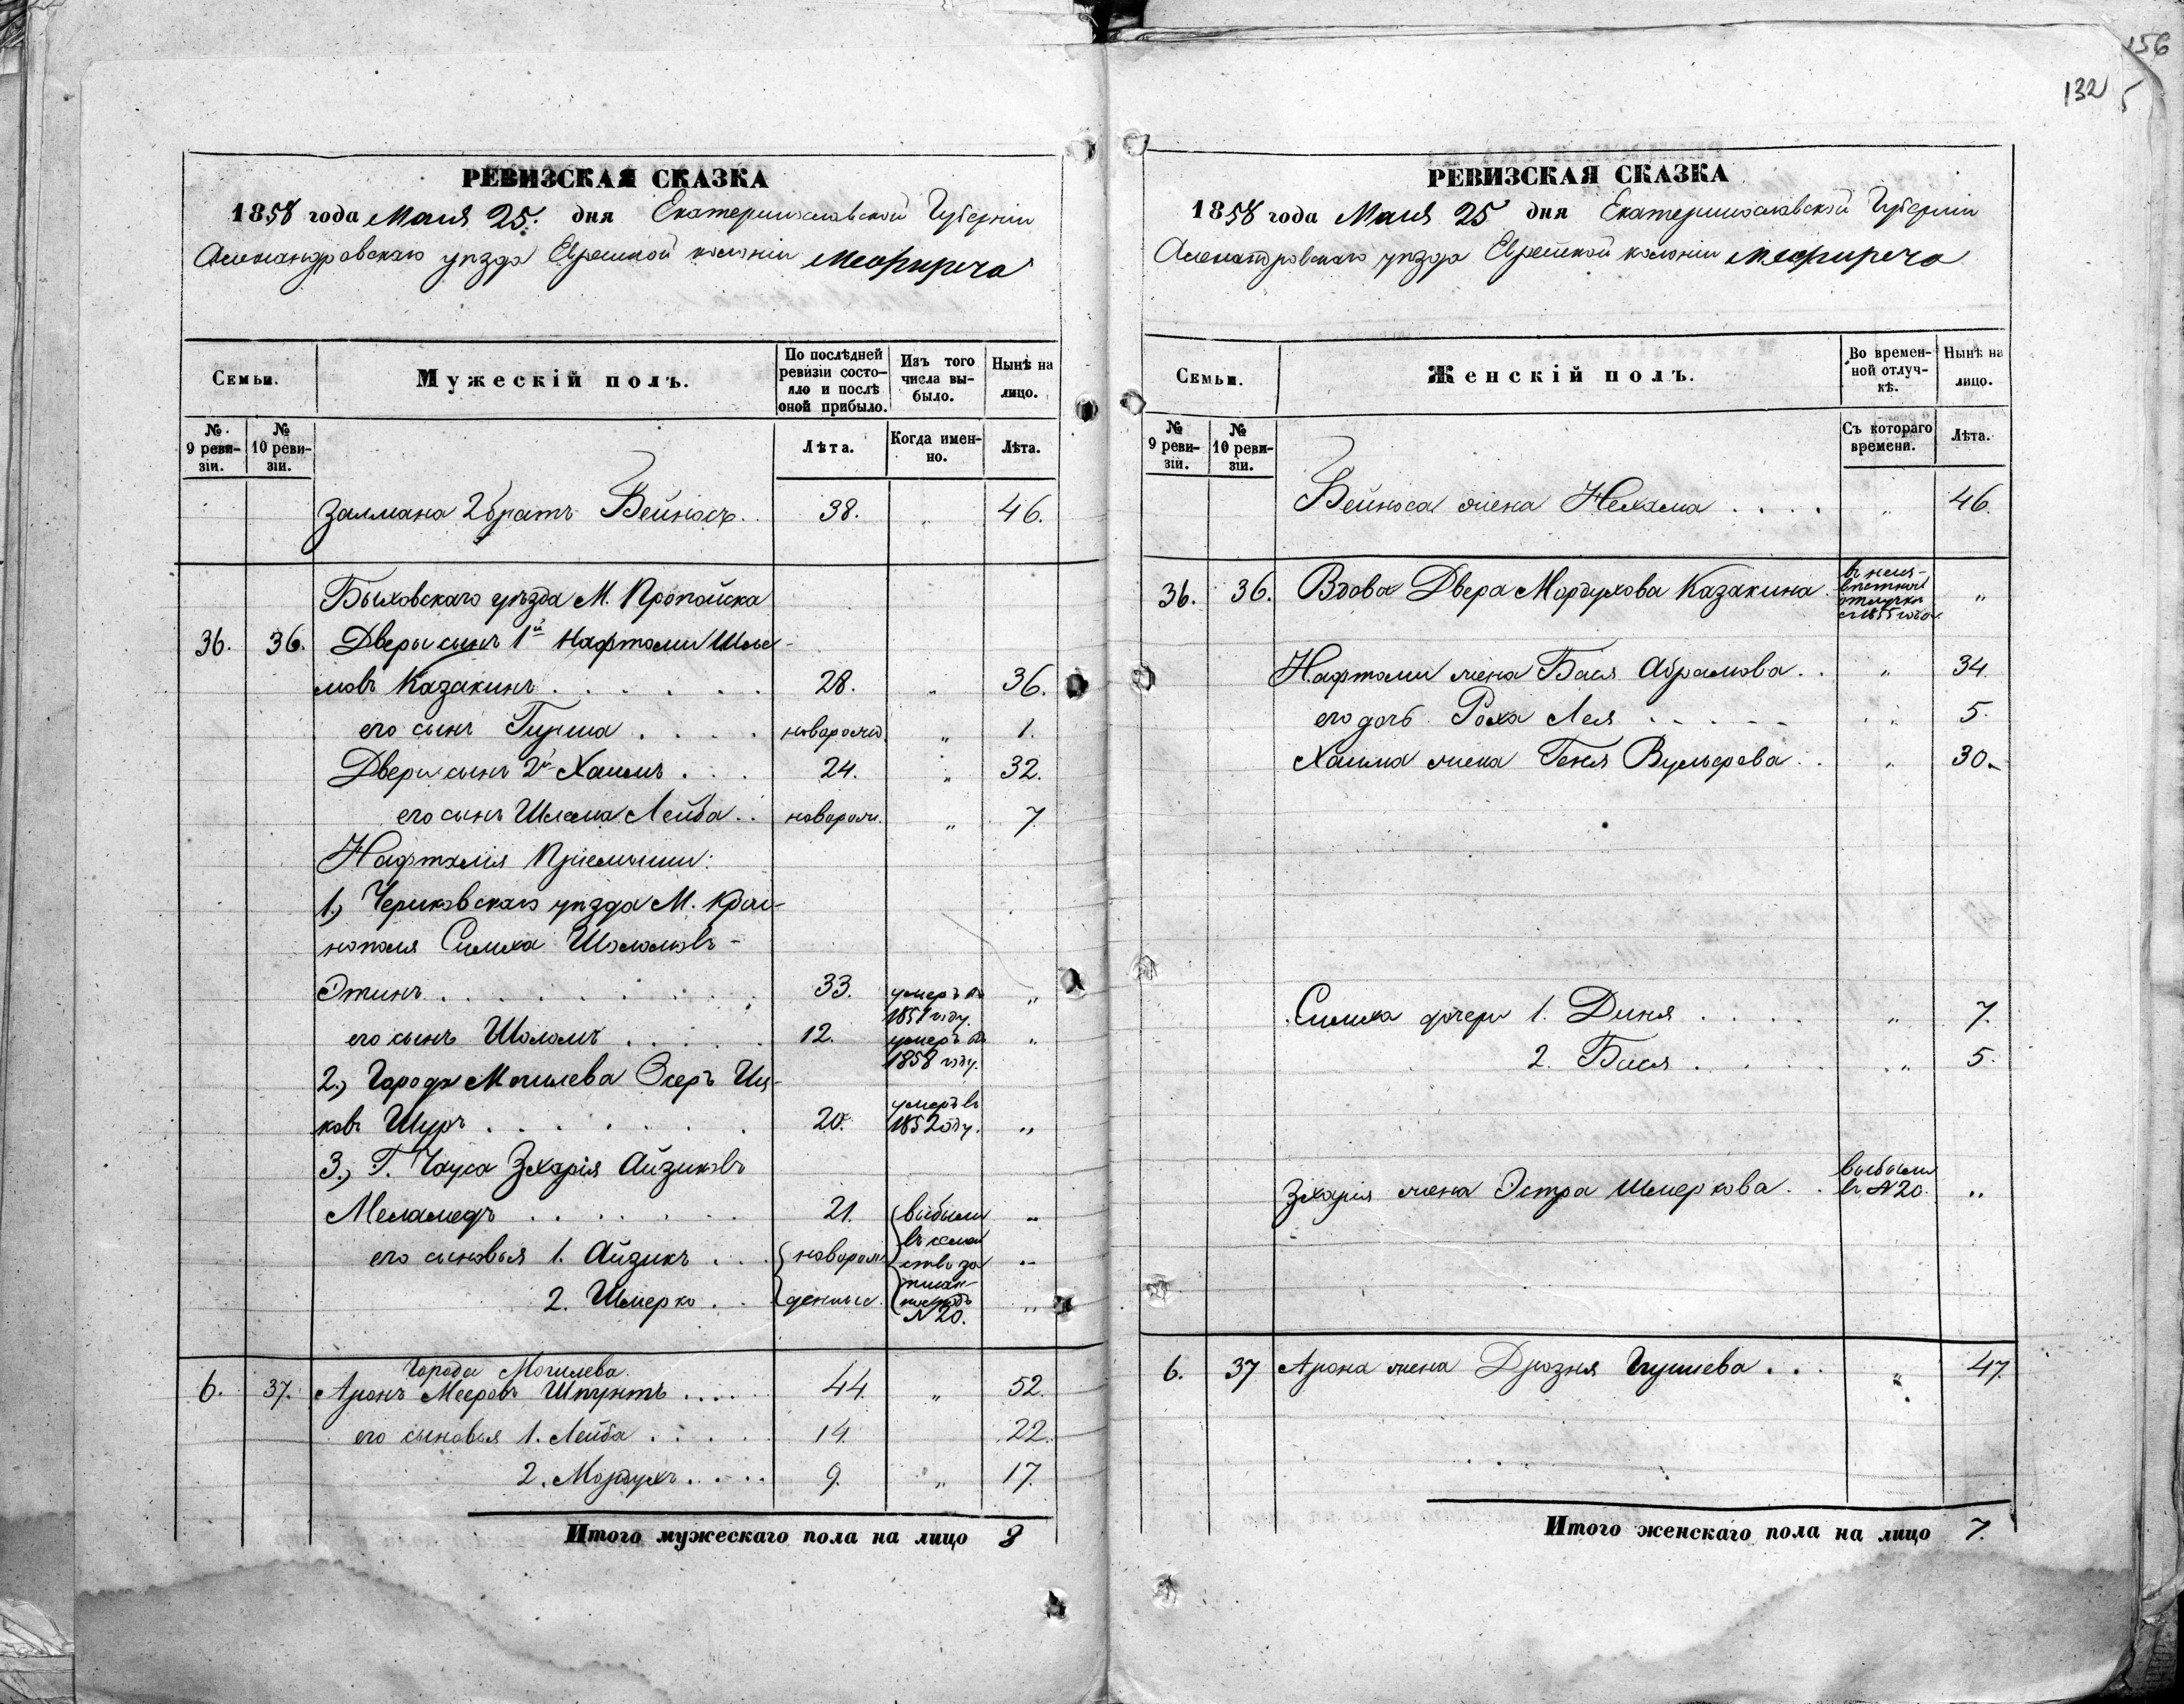 156
132
РЕВИЗСКАЯ СКАЗКА
1858 года Маия 25. дня Екатеринославской Губерніи
Александровскаго уѣзда Еврейской колоніи Межиречъ
Семьи.
Мужескій полъ.
По послѣдней ревизіи состояло и послѣ оной прибыло.
Изъ того числа выбыло.
Нынѣ на лицо.
№ 9 ревизіи.
№ 10 ревизіи.
Лѣта.
Когда именно.
Лѣта.
Залмана 2 братъ Бейносъ.. 38. „ 46.
Быховскаго уѣзда М. Пропойска
36. 36. Двери сынъ 1й Нафтоли Шле-
мовъ Казакинъ . . . . . . 28. „ 36.
его сынъ Гирша . . . . новорожд. „ 1.
Двери сынъ 2й Хаимъ . . . 24. „ 32.
его сынъ Шлема Лейба . . новорож. „ 7
Нафталія Пріемыши:
1.) Чериковскаго уѣзда М. Крас-
нополя Симха Шоломовъ-
Этинъ . . . . . . . . . 33. умеръ въ 1851 году. „
его сынъ Шоломъ . . . . . 12. умеръ въ 1858 году. „
2.) Города Могилева Эсеръ Иц-
ковъ Шуръ . . . . . . . 20. умеръ въ 1852 году. „
3.) Г. Чауса Зхарія Айзиковъ
Меламедъ . . . . . . . 21. выбыли „
въ семей-
его сыновья 1. Айзикъ . . . новорож ство за „
2. Шмерко . . . денные. № 20. „
Города Могилева
6. 37. Аронъ Мееровъ Шпунтъ .... 44. „ 52.
его сыновья 1. Лейба . . . . . 14. 22.
2. Мордухъ . . . . 9. „ 17.
Итого мужескаго пола на лицо 8
РЕВИЗСКАЯ СКАЗКА
1858 года Маия 25 дня Екатеринославской Губерніи
Александровскаго уѣзда Еврейской колоніи Межиречъ
Семьи.
Женскій полъ.
Во временной отлучкѣ.
Нынѣ на лицо.
№ 9 ревизіи.
№ 10 ревизіи.
Съ котораго времени.
Лѣта.
Бейноса жена Нехама . . . . „ 46.
36. 36. Вдова Двера Мордухова Казакина. въ неиз-
вѣстной
отлучкѣ
съ 1855 года „
Нафтоли жена Бася Абрамова . . „ 34.
его дочь Роха Лея . . . . . „ 5.
Хаима жена Геня Вульфова . . „ 30.
Симха дочери 1. Диня . . . . „ 7.
2. Бася . . . . „ 5.
Зхарія жена Эстра Шмеркова . . выбыли
въ № 20. „
6. 37 Арона жена Дрозня Гиршева . . . „ 47.
Итого женскаго пола на лицо 7.